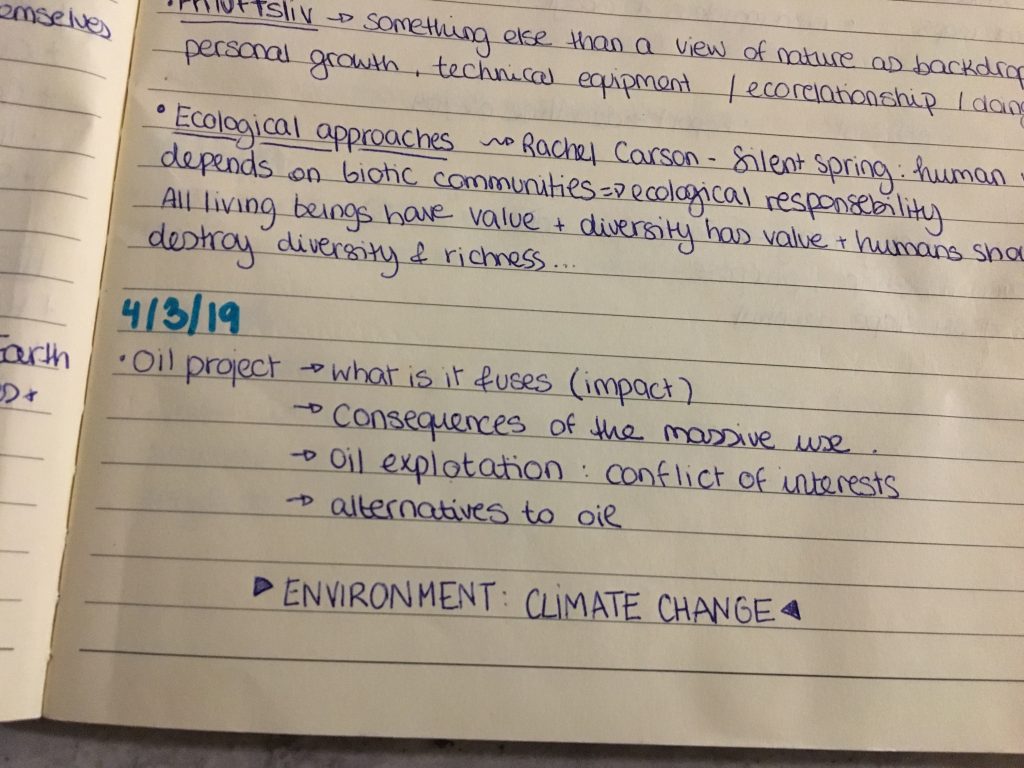 emselves
Friluftsliv → something else than a view of nature as backdrop
personal growth, technical equipment / ecorelationship /
• Ecological approaches ~> Rachel Carson - Silent spring: human
depends on biotic communities => ecological responsebility
All living beings have value + diversity has value + humans
destroy diversity & richness...
4/3/19
Earth
• Oil project → what is it fuses (impact)
→ consequences of the massive use.
→ Oil explotation : conflict of interests
→ alternatives to oil
▶ ENVIRONMENT: CLIMATE CHANGE ◀